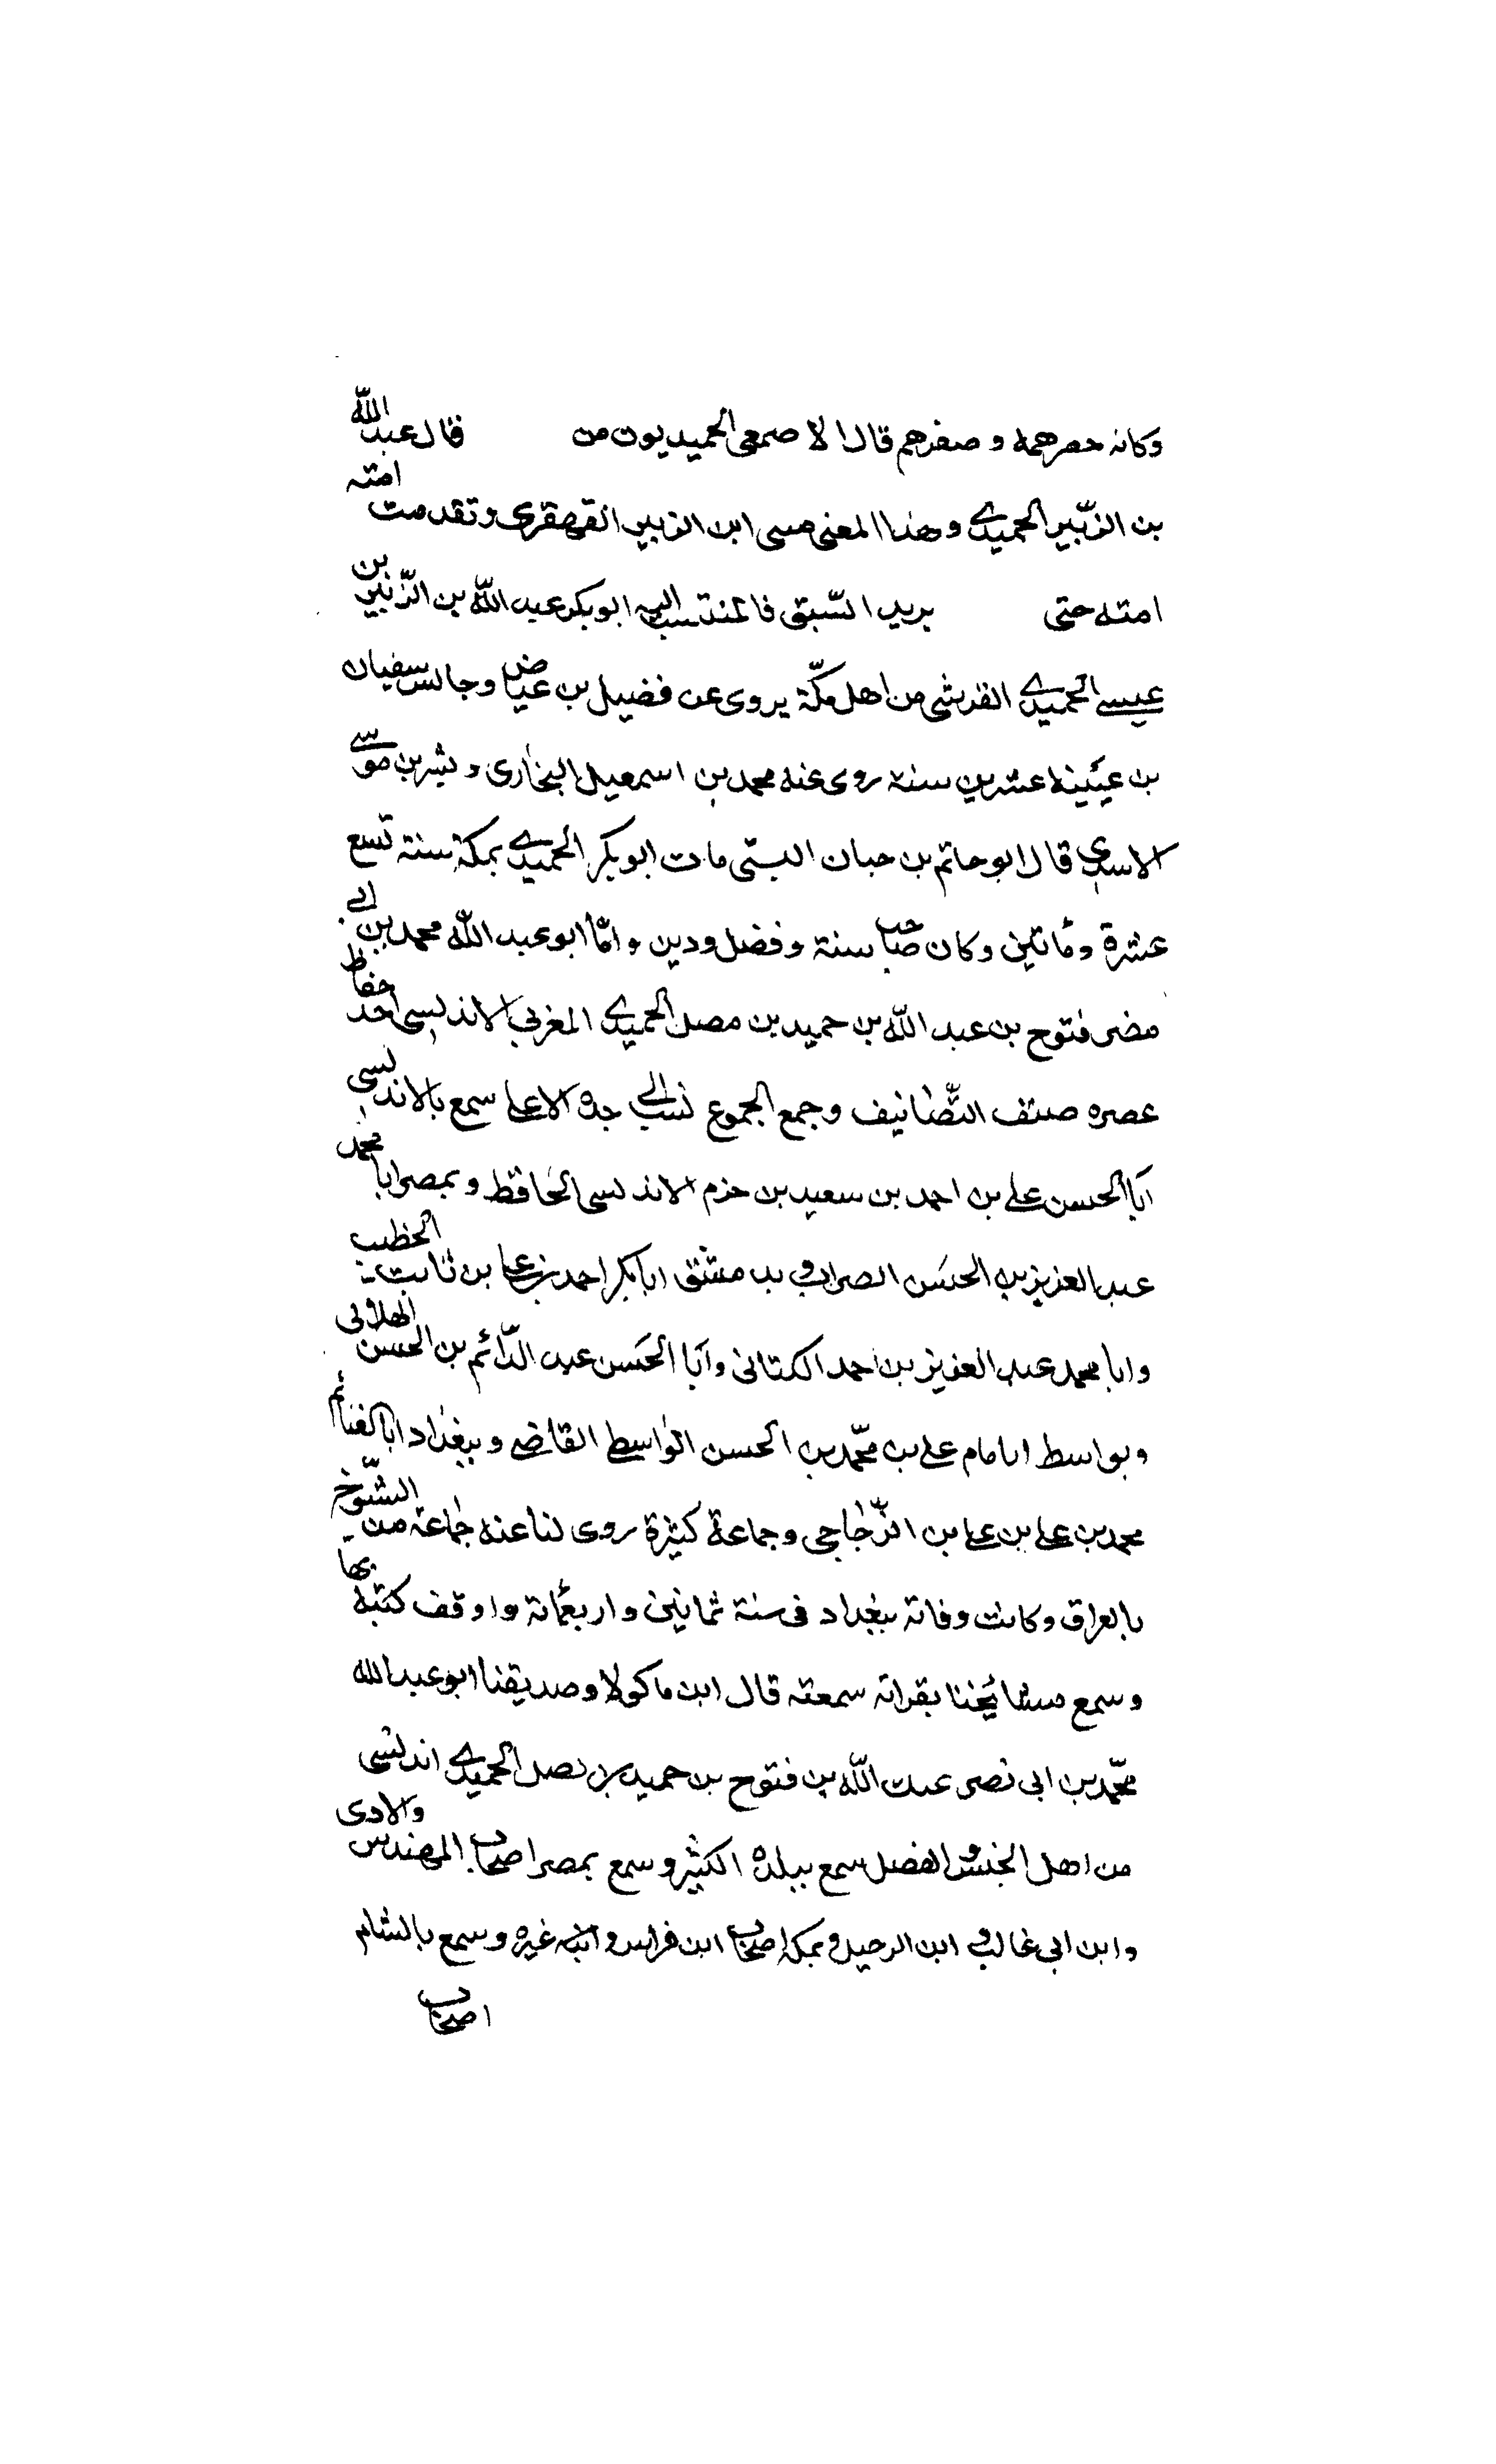 وكانه حصرهمه و صغرهم قال الاصمعى الحميديون من قال عبد الله
بن الزّبير الحميدى وهذا المعنى مسى ابن الزبير القهقرى وتقدمت امته
امته حتى يريد السّبق فالمنتسب اليه ابو بكر عبد اللّه بن الزّبير بن
عيسى الحميدى القرشى من اهل مكّة يروى عن فضيل بن عياض وجالس سفيان
بن عيينه عشرين سنة روى عنه محمد بن اسمعيل البخارى و بشر بن موسى
الاسدى قال ابو حاتم بن حبان البستى مات ابو بكر الحميدى بمكة سنة تسع
عشرة ومأتين وكان صاحب سنة وفضل ودين وامّا ابو عبد اللّه محمد بن ابى
مضر فتوح بن عبد اللّه بن حميد بن مصل الحميدى المغربى الاندلسى احد حفاظ
عصره صنف التّصانيف وجمع الجموع نسب الى جده الاعلى سمع بالاندلسى
ابا الحسن على بن احمد بن سعيد بن حزم الاندلسى الحافظ وبمصر ابا محمد
عبد العزيز بن الحسن الصراب وبدمشق ابا بكر احمد بن على بن ثابت الخطيب
وابا محمد عبد العزيز بن احمد الكتانى وابا الحسن عبد الدّائم بن الحسن الهلالى
وبواسط امام على بن محمّد بن الحسن الواسطى القاضى وببغداد ابا الغنائم
محمد بن على بن على بن الزّجاجى وجماعة كثيرة روى لنا عنه جماعة من الشّيوخ
بالعراق وكانت وفاته ببغداد فى سنة ثمانين واربعمائة واوقف كتبه بها
وسمع مشايخنا بقراته سمعته قال ابن ماكولا وصديقنا ابو عبد الله
محمّد بن ابى نصر عبد اللّه بن فتوح بن حميد بن نصل الحميدى اندلسى
من اهل الفضل سمع ببلده الكثير وسمع بمصر اصحاب المهندس والادى
وابن ابى غالب و ابن الرحيل وبمكة اصحاب ابن فراس و غيره وسمع بالشام
اصحاب